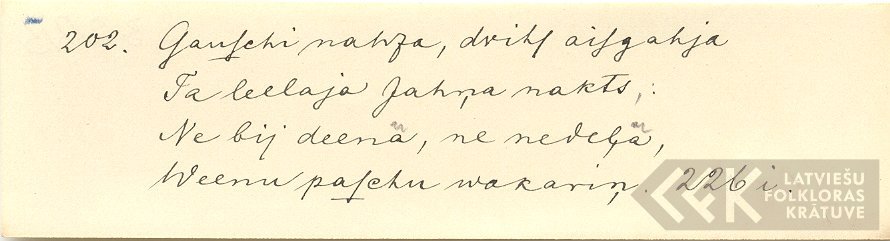 202. Gauſchi nahza, drihſ aiſgahja
Ta leelaja Jahņa nakts,:
Ne bij deenā, ne nedeļā,
Weenu paſchu wakariņ. 226 i.
LATVIEŠU
FOLKLORAS
KRĀTUVE